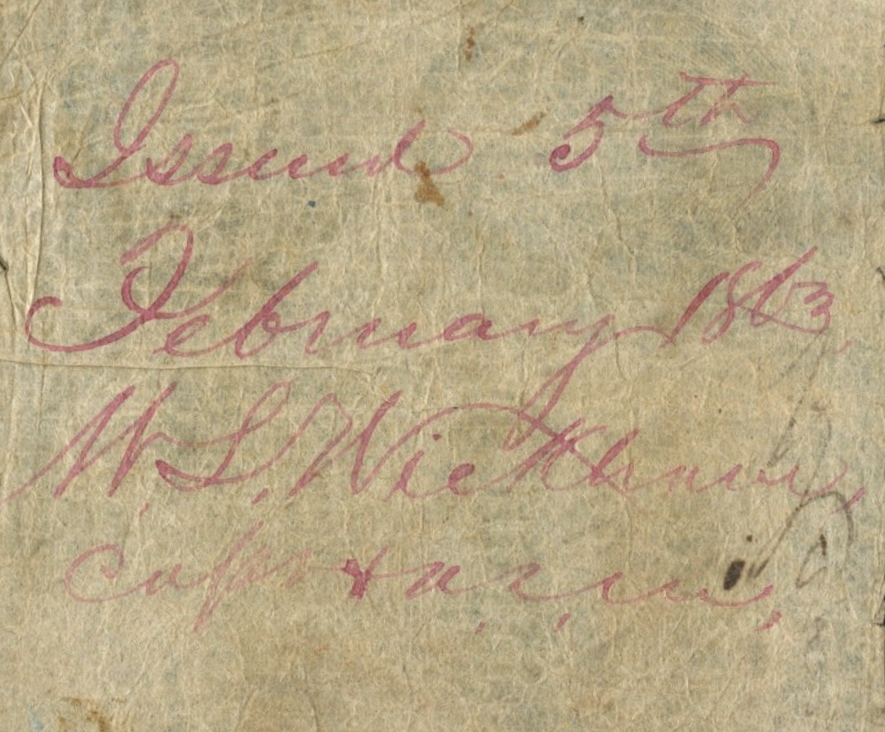 Issued 5th
February 1863
W. L. Wickham,
Capt & a, q, m,